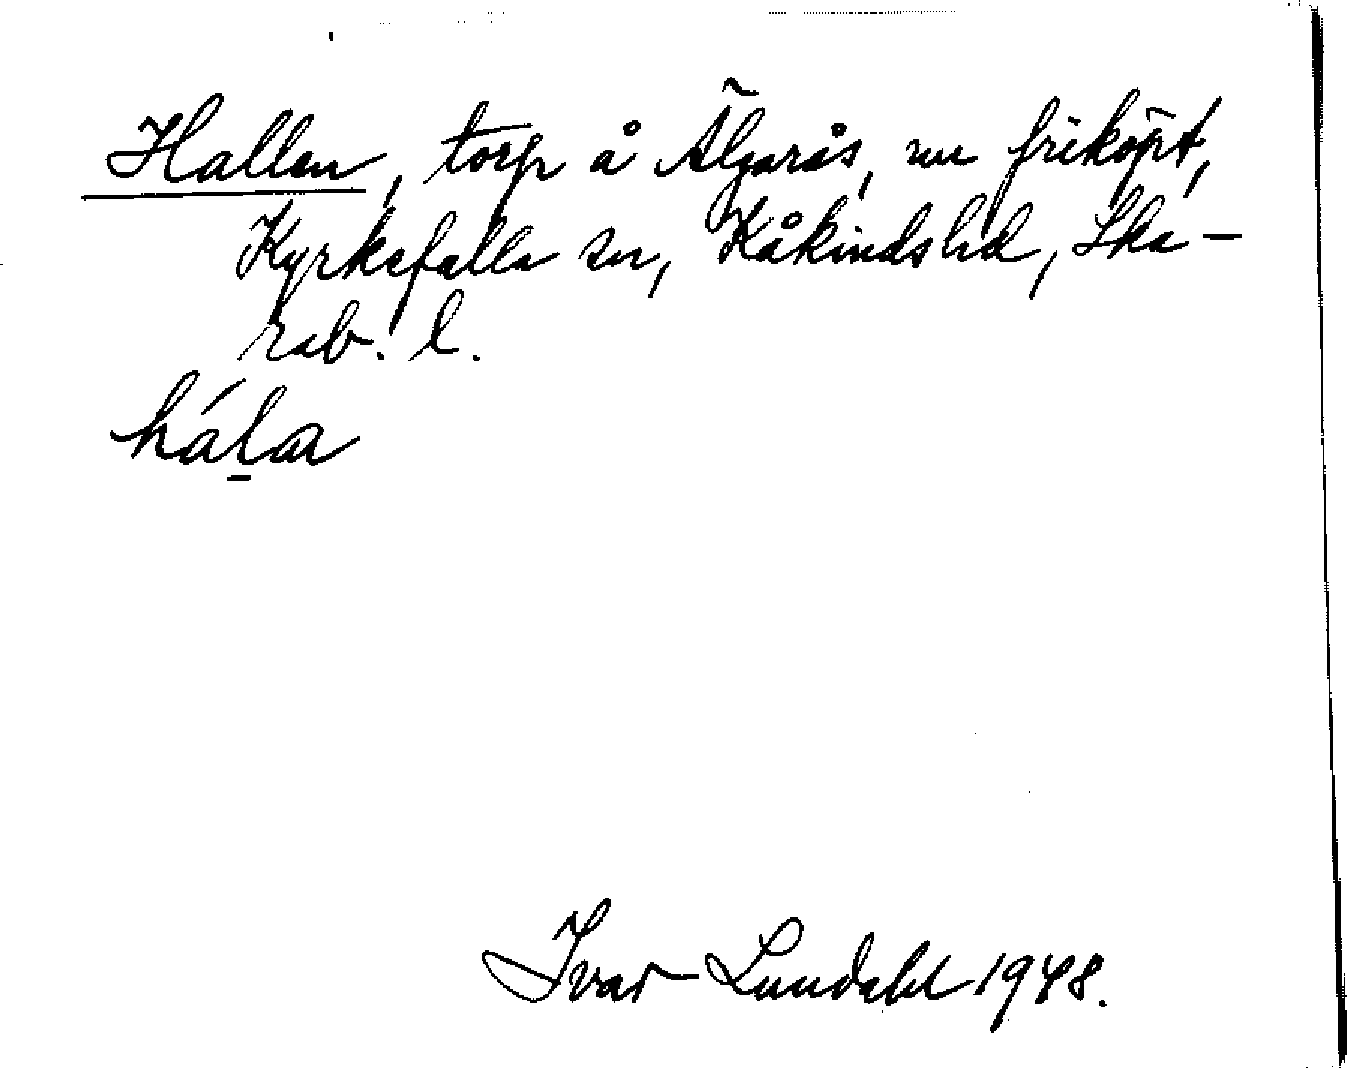 Hallen, torp å Älgarås, nu friköpt,
Kyrkefalla sn, Kåkinds hd, Ska-
rab. l.
háḻa
Ivar Lundahl 1948.